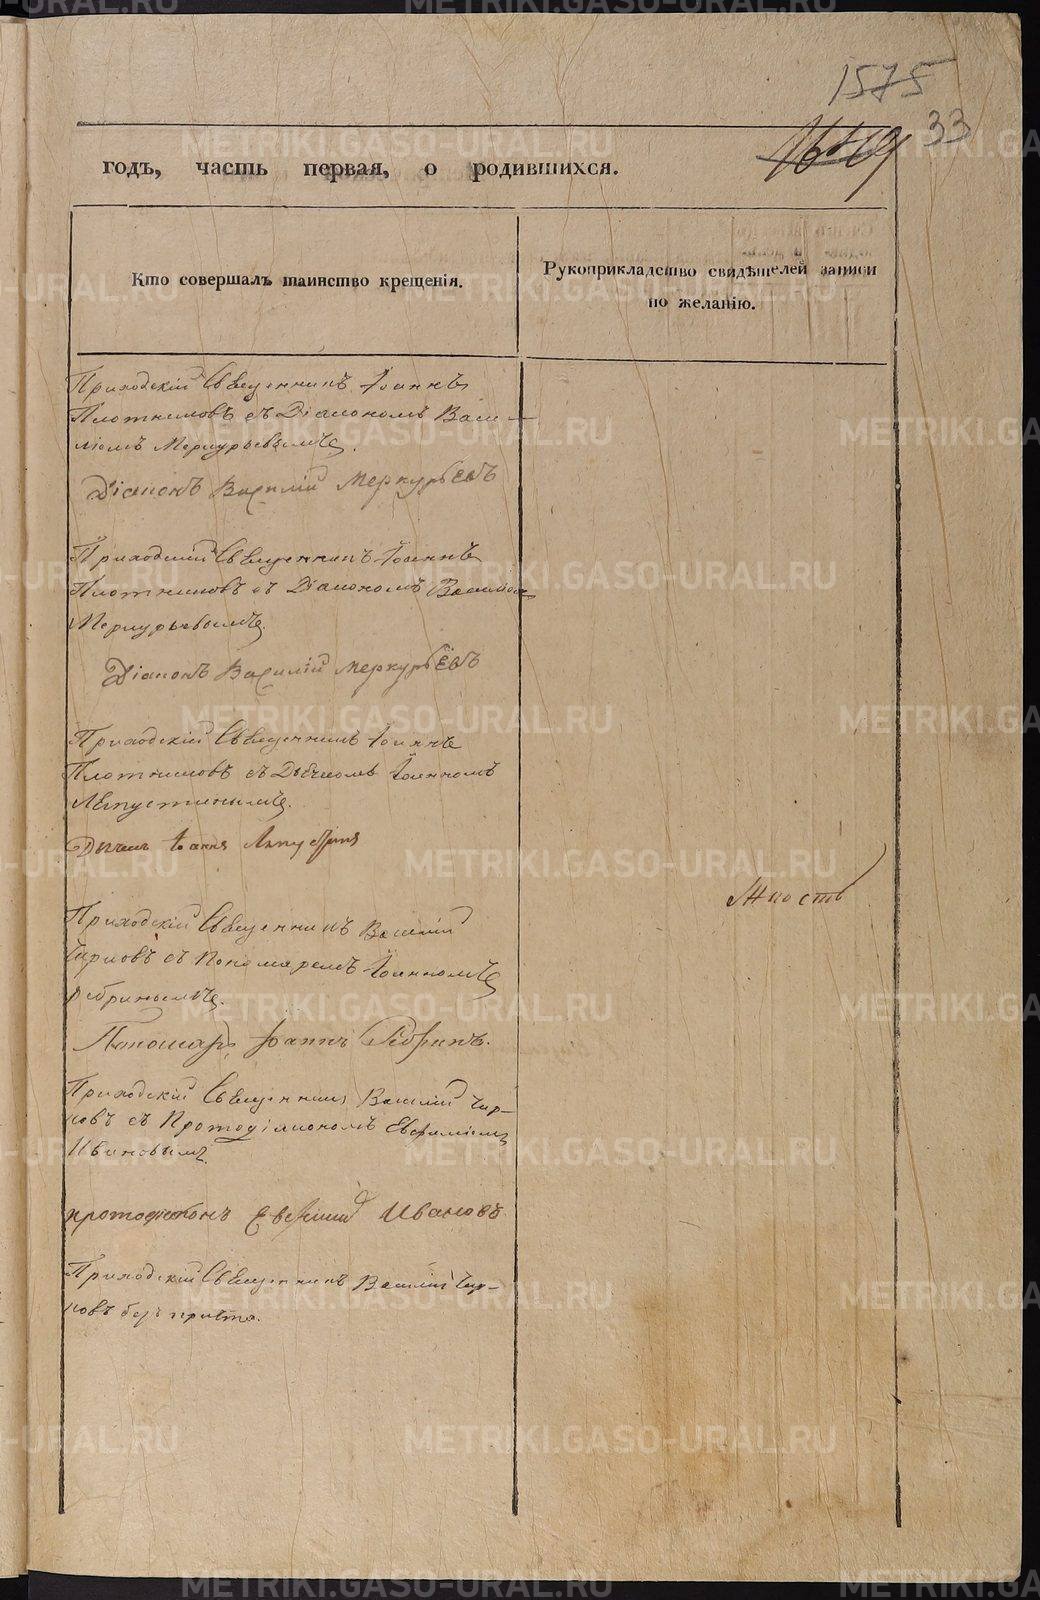 1575
33
годъ, часть первая, о родившихся.
Кто совершалъ таинство крещенія.
Рукоприкладство свидѣтелей записи
по желанію.
Приходскій Священникъ Іоаннъ
Плотниковъ съ Діакономъ Васи-
ліемъ Меркурьевымъ.
Діаконъ Василій Меркурьевъ
Приходскій Священникъ Іоаннъ
Плотниковъ съ Діакономъ Василіемъ
Меркурьевымъ.
Діаконъ Василій Меркурьевъ
Приходскій Священникъ Іоаннъ
Плотниковъ съ Дьячкомъ Іоанномъ
Лепустинымъ.
Дьячек Іоаннъ
Приходскій Священникъ Василій
Чирковъ съ Пономаремъ Іоанномъ
Ребринымъ.
Пономарь Іоаннъ Ребринъ.
Приходскій Священникъ Василій Чир-
ковъ съ Протодіакономъ Евфиміемъ
Ивановымъ.
протодіаконъ Евфимій Ивановъ
Приходскій Священникъ Василій Чир-
ковъ безъ причта.
METRIKI.GASO-URAL.RU